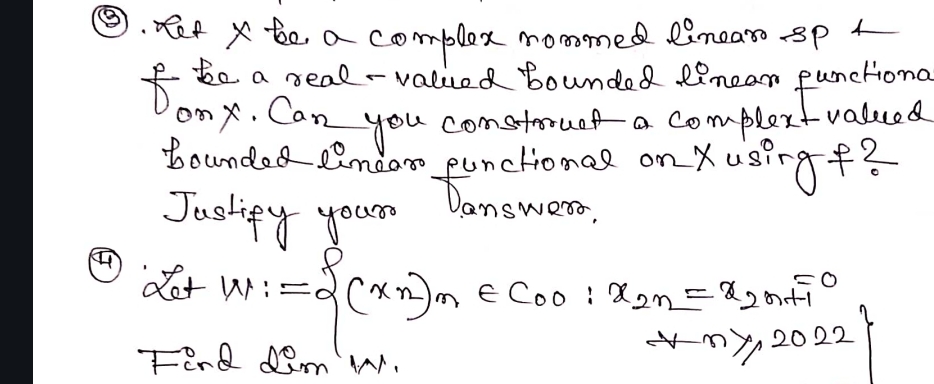 ③. Let X be a complex normed linear sp &
f be a real-valued bounded linear functiona
on X. Can you construct a complex valued
bounded linear functional on X using f?
Justify your answer.
④ Let W := { (xn)n ∈ C00 : x2n = x2n+1 = 0
∀ n ≥ 2022 }
Find dim W.